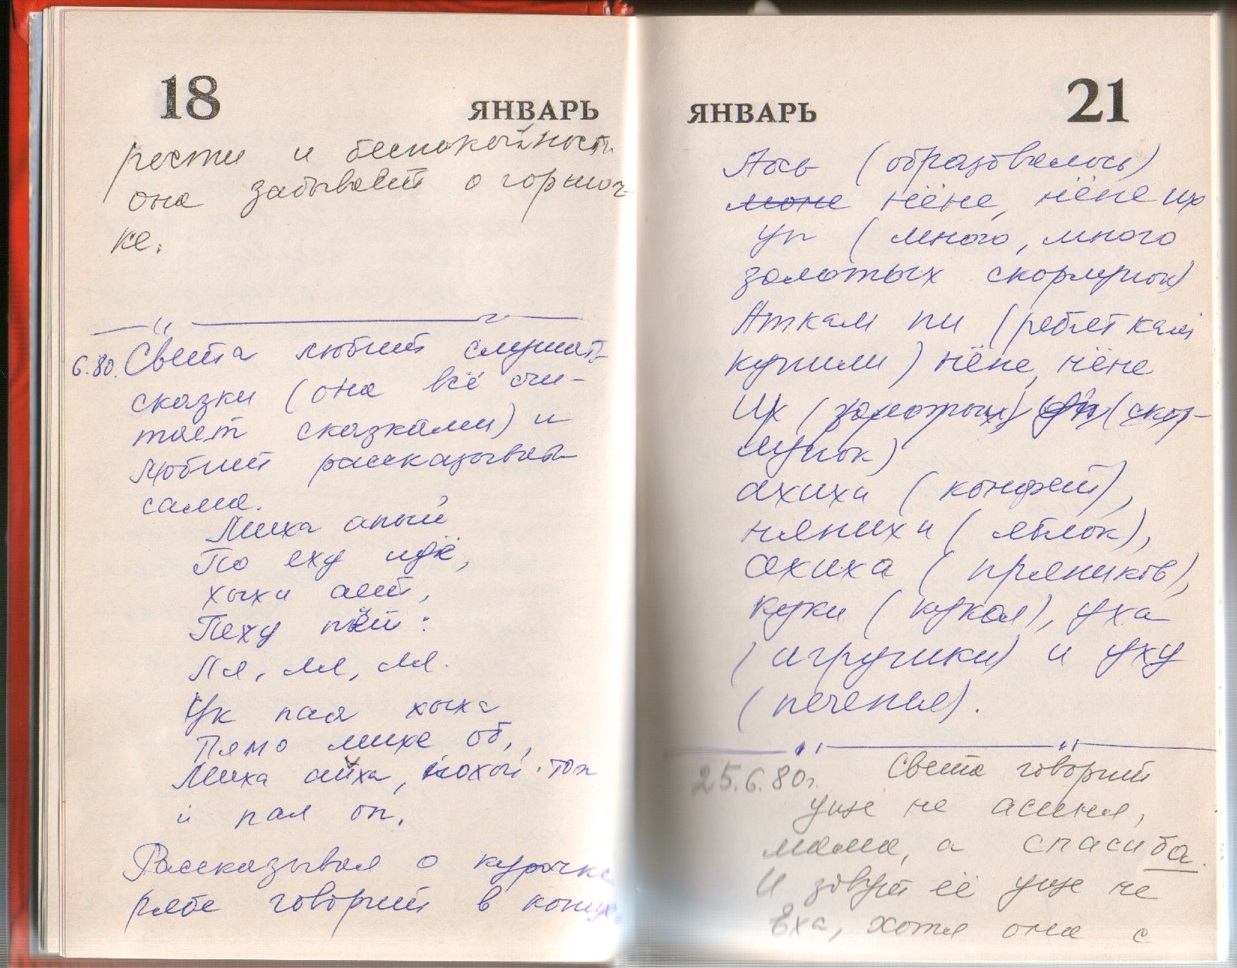 18 ЯНВАРЬ
рости и беспокойност.
она забывает о горшоч-
ке.
6.80. Света любит слушать
сказки (она всё счи-
тает сказками) и
любит рассказывать
сама.
Миха апый
По еху идё,
хыхи ает,
Пеху пёт:
Ля, ля, ля.
Ук пая хыха
Пямо михе об,
Миха айха, похой топ
и пал оп.
Рассказывая о курочке
рябе говорит в конце
ЯНВАРЬ 21
Ась (образовалось)
моне нёне, нёне их
уп (много, много
золотых скорлупок)
Аткам пи (ребяткам
купили) нёне, нёне
Их (золотых) (скор-
лупок)
ахиха (конфет),
няпихи (яблок),
ахиха (пряников),
куки (кукол), уха
(игрушки) и уху
(печенья).
25.6.80г. Света говорит
уже не асиня,
мама, а спасиба.
И зовут её уже не
Вха, хотя она с